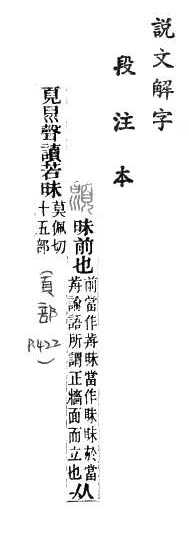 說文解字
段注本
昧前也
前當作歬昧當作眛眛於當
歬論語所謂正牆面而立也
从
頁㬎聲讀若昧
莫佩切
十五部
(頁部
P422)